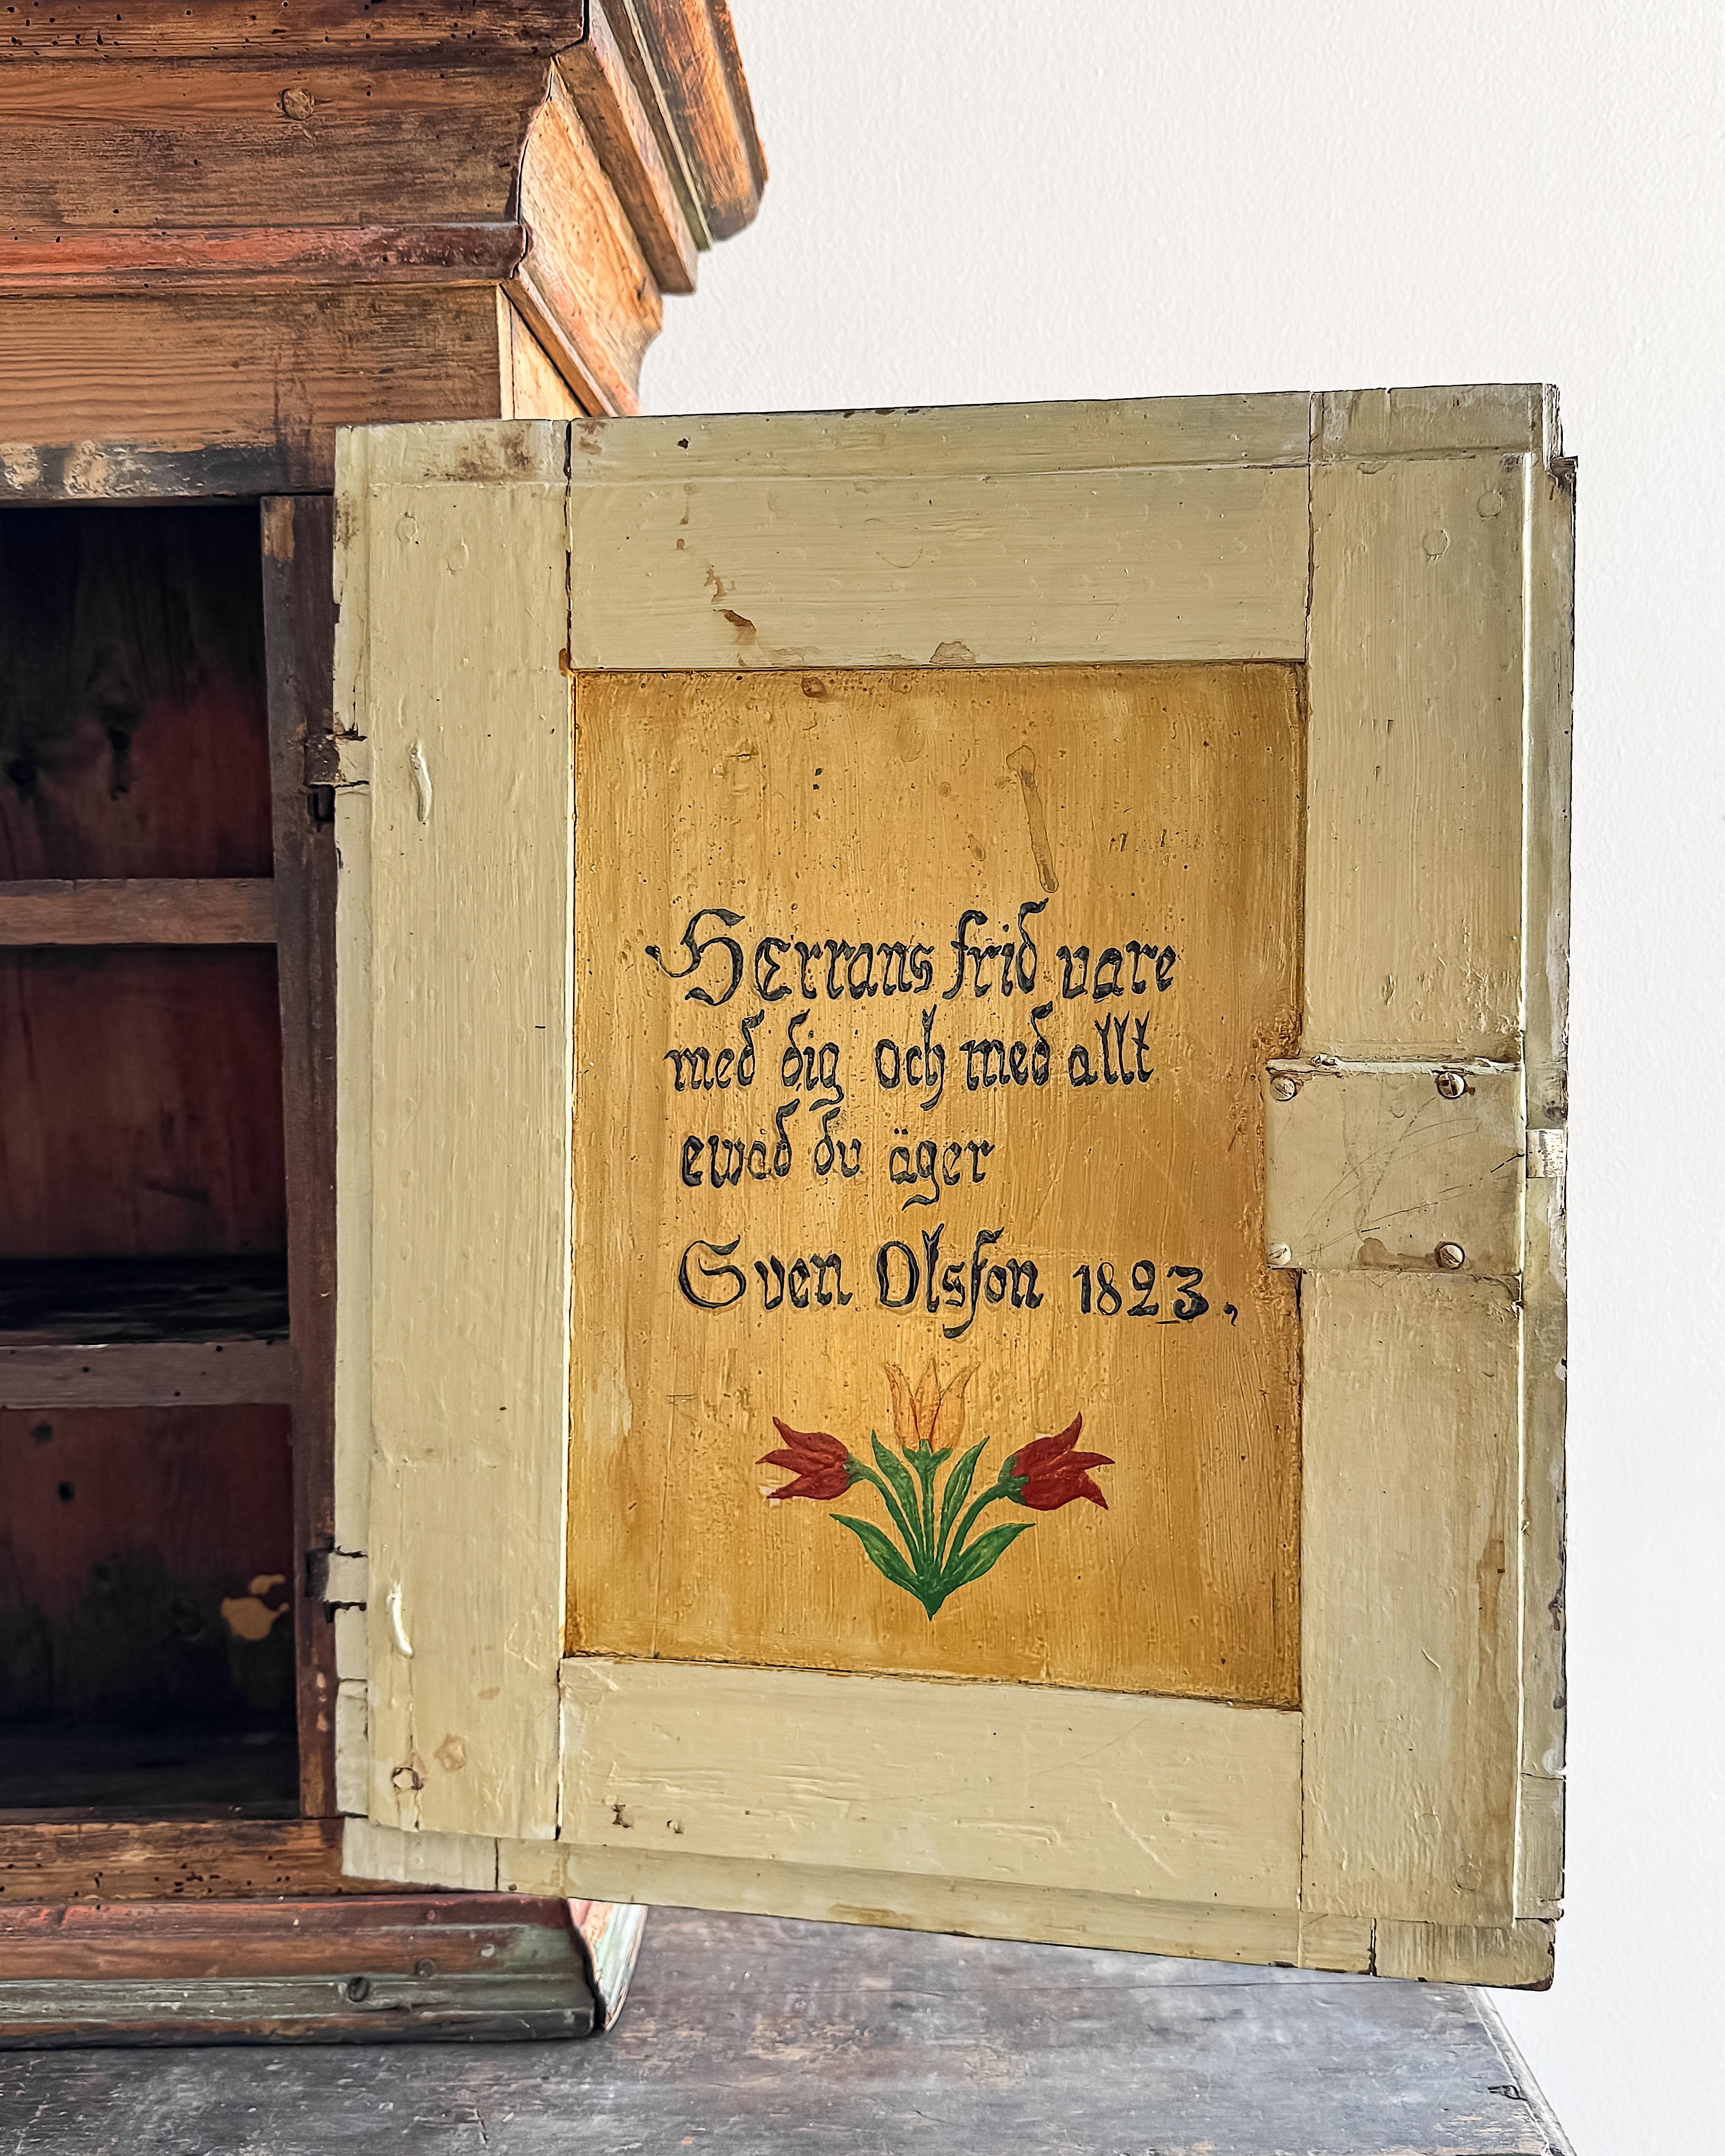 Herrans frid vare
med dig och med allt
ewad du äger
Sven Olsson 1823,